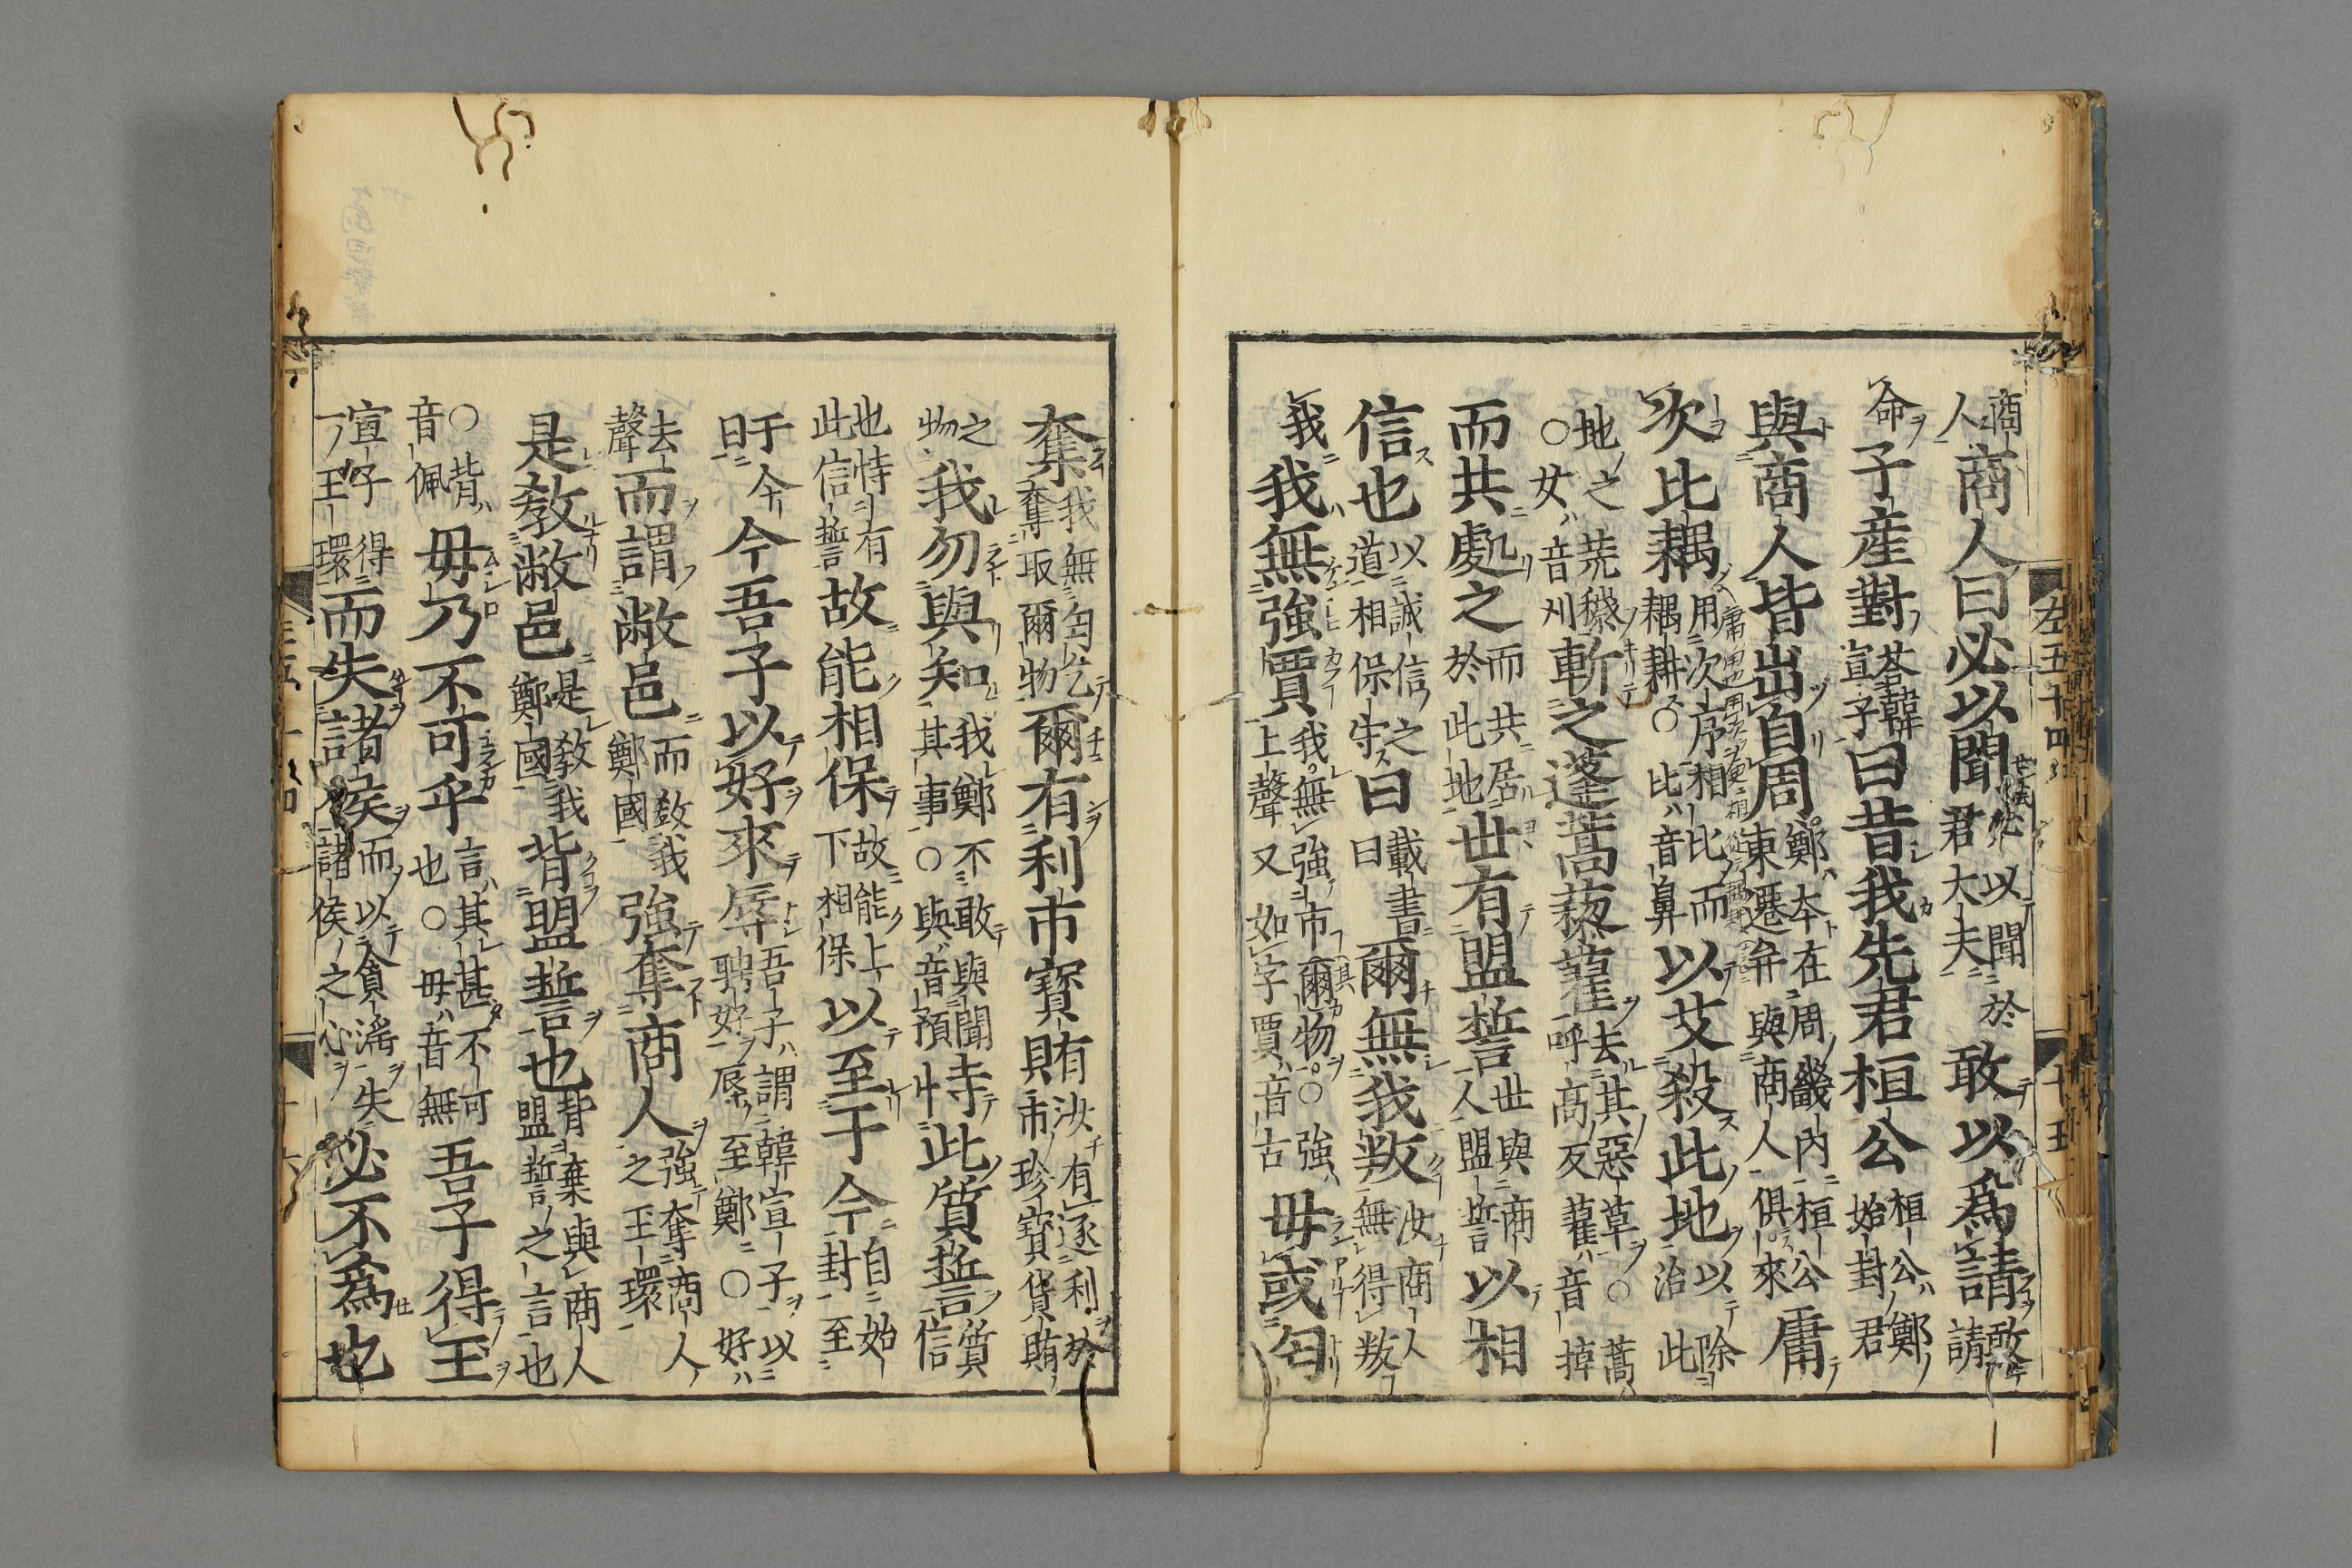 左五十四 十五
商人商人曰必以聞以聞於君大夫敢以爲請敢請
命子産對荅韓宣子曰昔我先君桓公桓公鄭始封君
與商人皆出自周鄭本在周畿内桓公東遷并與商人俱來庸
次比耦用次序相比而耦耕○比音鼻以艾殺此地以除治此
地之荒穢○女音刈斬之蓬蒿藜藋去其惡草○蒿呼高反藋音掉
而共處之而共居於此地世有盟誓世與商人盟誓以相
信也以誠信之道相保守曰載書曰爾無我叛汝商人無得叛
我我無強賈我無強市爾物○強上聲又如字賈音古毋或匄
奪我無匄乞奪取爾物爾有利市寳賄汝有逐利於市珍寳貨賄
之物我勿與知我鄭不敢與聞其事○與音預恃此質誓質信
也恃有此信誓故能相保故能上下相保以至于今自始封至
于今曰今吾子以好來辱吾子謂韓宣子以聘好辱至鄭○好
去聲而謂敝邑而敎我鄭國強奪商人強奪商人之玉環
是敎敝邑是敎我鄭國背盟誓也背棄與商人盟誓之言也
○背音佩毋乃不可乎言其甚不可也○毋音無吾子得玉
宣子得一玉環而失諸侯而以貪滛失諸侯之心必不爲也